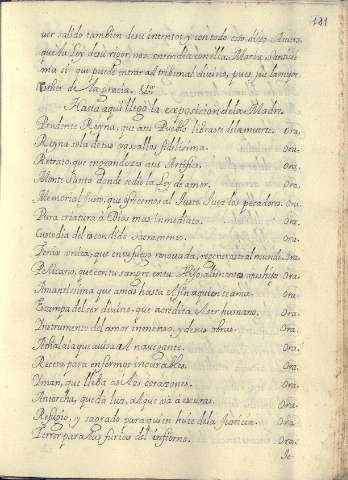 181
ver salido tambien de su intento; y con todo esto dixo Asuero,
que la Ley de su rigor, no se entendia con ella. Maria Santissi
ma si que puede entrar al tribunal divino, pues fue la mejor
Esther de la gracia. &ra
Hasta aqui llego la exposicion de la Madre.
Prudente Reyna, que a tu Pueblo libraste de la muerte. Ora.
Reyna sola de tus vasallos fidelissima. Ora.
Retrato, que engrandeze a tu Artifize. Ora.
Monte Santo donde se dio la Ley de amor. Ora.
Memorial justo, que ofrecemos al Justo Juez los pecadores. Ora.
Pura criatura a Dios mas inmediata. Ora.
Custodia del escondido Sacramento. Ora.
Fenix unica, que en su fuego renovada, regeneraste al mundo. Ora
Pelicano, que con tu sangre en tu Hijo, alimentas a sus hijos. Ora.
Amantissima que amas hasta el fin a quien te ama. Ora.
Estampa del ser divino, que acredita el ser humano. Ora.
Instrumento del amor inmenso, y de sus obras. Ora.
Athalaia que avisa al navegante. Ora.
Receta para enfermos incurables. Ora.
Yman, que lleba a si los corazones. Ora.
Antorcha, que da luz, al que va a escuras. Ora.
Refugio, y sagrado para quien huie de la Justicia. Ora.
Terror para las furias del infierno. Ora.